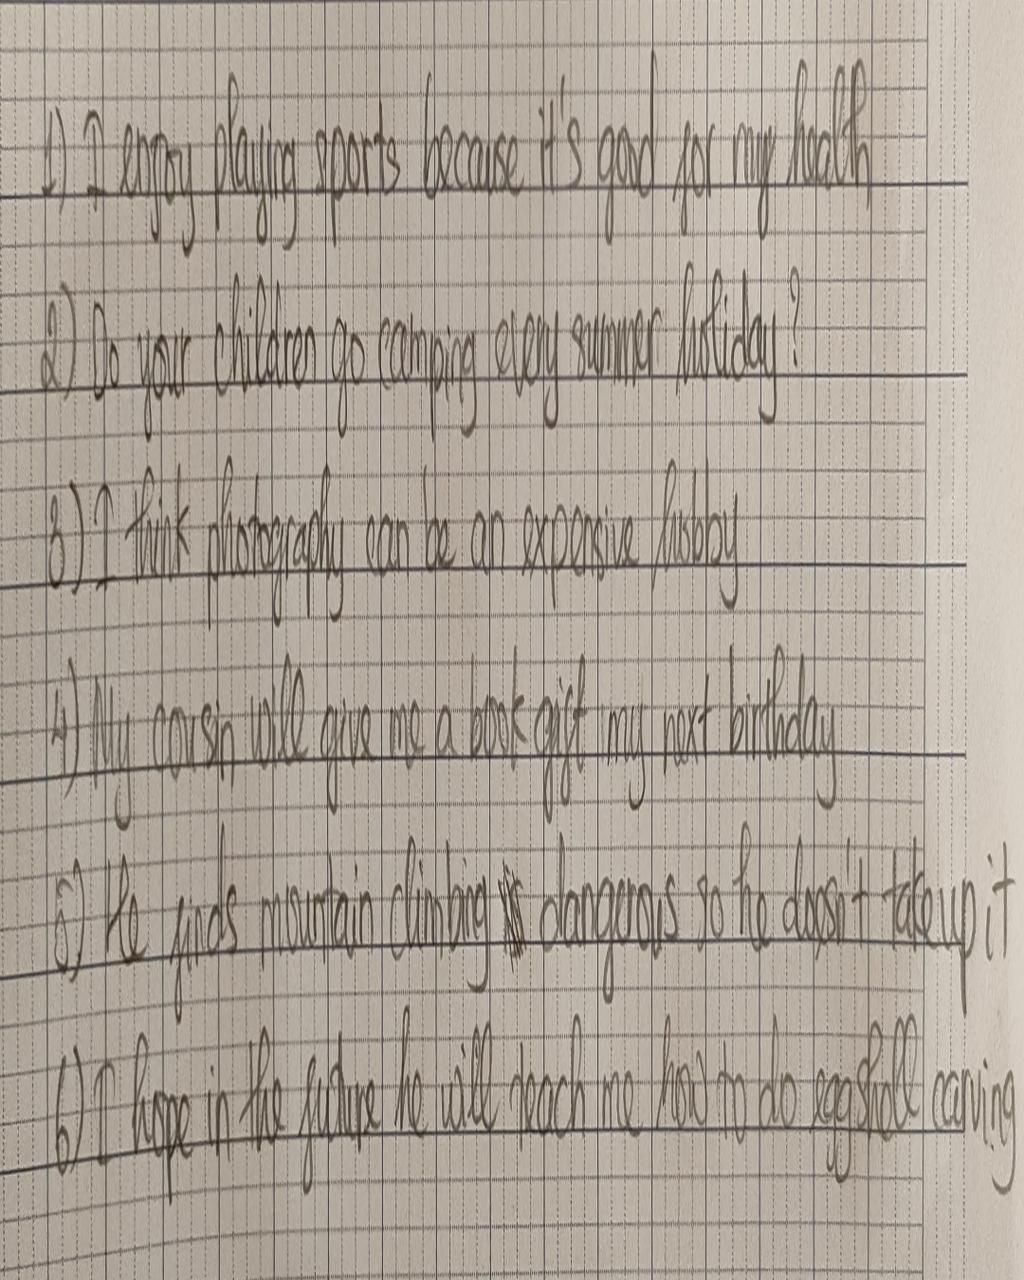 1) I enjoy playing sports because it's good for my health
2) Do your children go camping every summer holiday?
3) I think photography can be an expensive hobby
4) My cousin will give me a book gift my next birthday
5) He finds mountain climbing dangerous so he doesn't take up it
6) I hope in the future he will teach me how to do eggshell carving